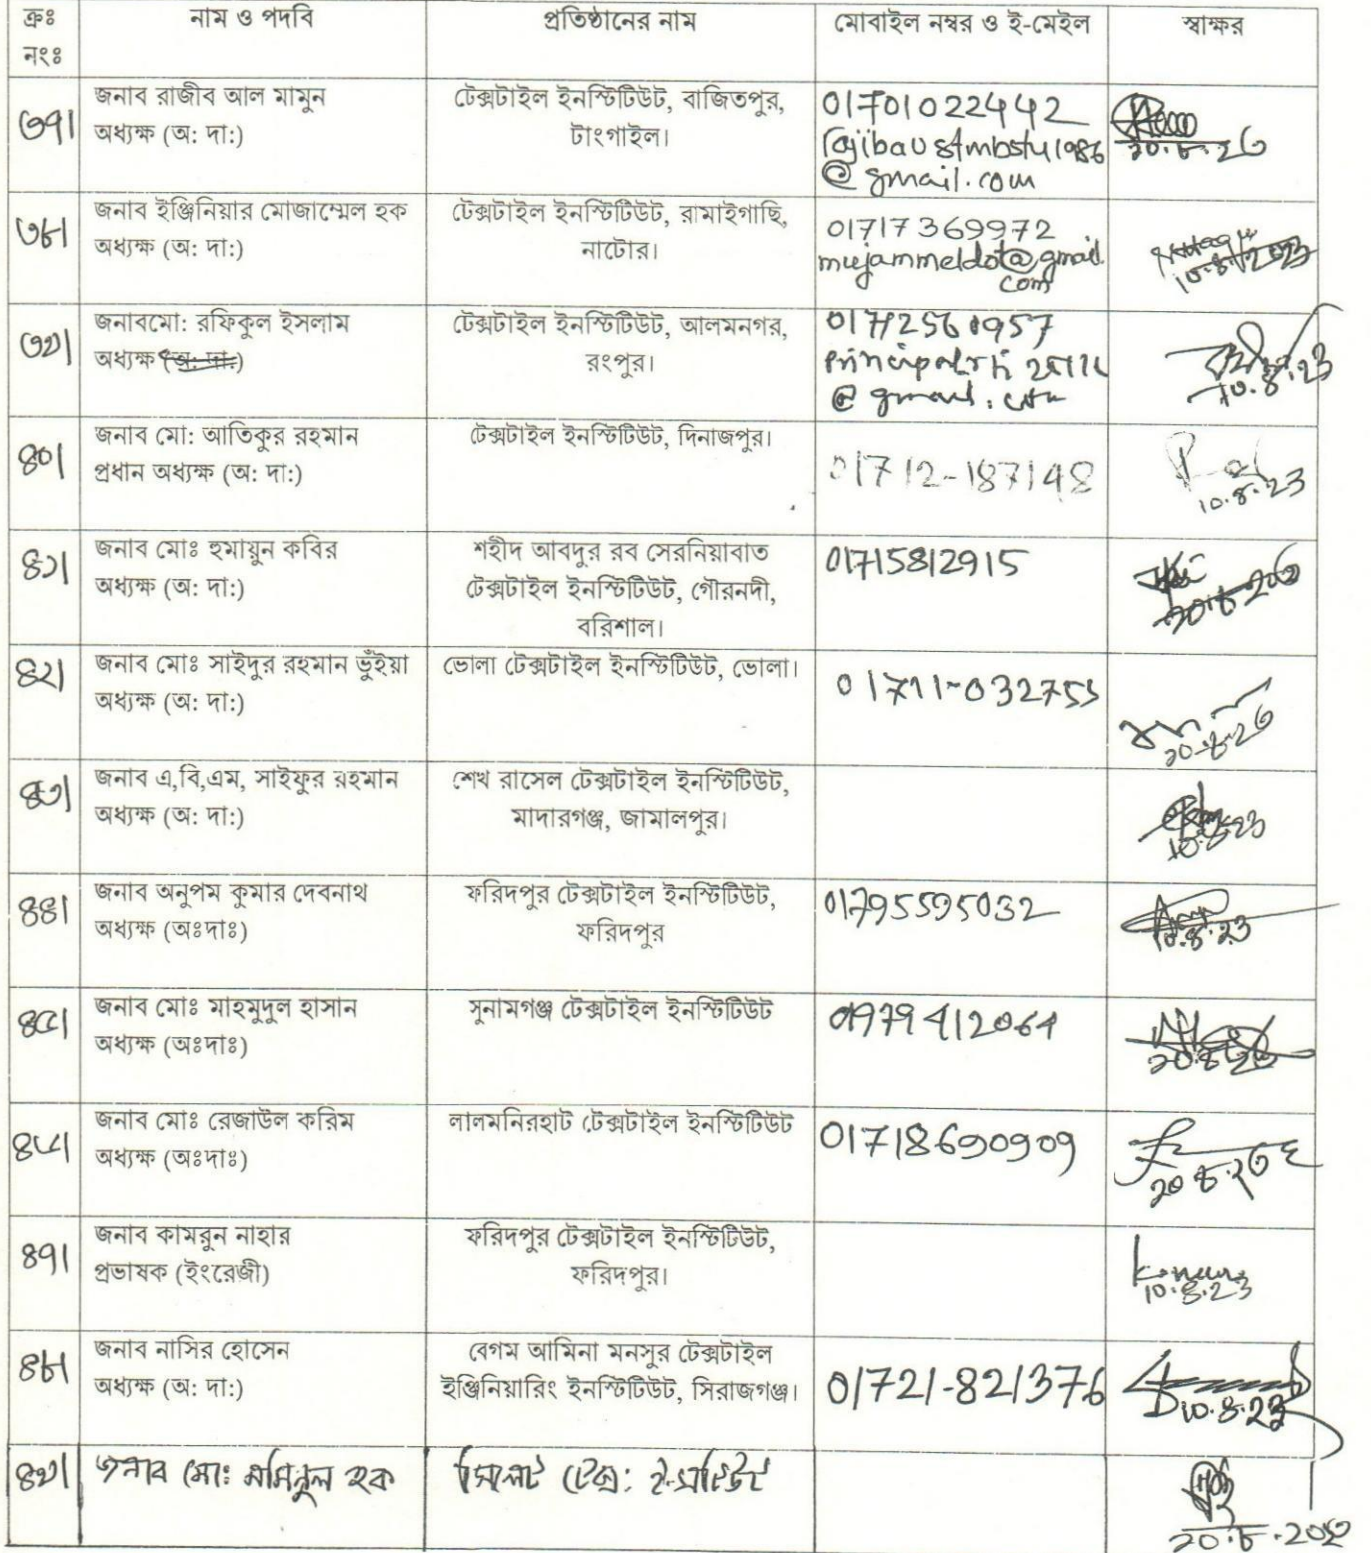 ক্রঃ নংঃ | নাম ও পদবি | প্রতিষ্ঠানের নাম | মোবাইল নম্বর ও ই-মেইল | স্বাক্ষর
৩৭।
জনাব রাজীব আল মামুন
অধ্যক্ষ (অ: দা:)
টেক্সটাইল ইনস্টিটিউট, বাজিতপুর,
টাংগাইল।
01701022442
@gmail.com
২০.৮.২৩
৩৮।
জনাব ইঞ্জিনিয়ার মোজাম্মেল হক
অধ্যক্ষ (অ: দা:)
টেক্সটাইল ইনস্টিটিউট, রামাইগাছি,
নাটোর।
01717369972
mujammeldot@gmail.
com
10.8.2023
৩৯।
জনাবমো: রফিকুল ইসলাম
অধ্যক্ষ (অ: দা:)
টেক্সটাইল ইনস্টিটিউট, আলমনগর,
রংপুর।
@gmail.com
10.8.23
৪০।
জনাব মো: আতিকুর রহমান
প্রধান অধ্যক্ষ (অ: দা:)
টেক্সটাইল ইনস্টিটিউট, দিনাজপুর।
01712-187148
10.8.23
৪১।
জনাব মোঃ হুমায়ুন কবির
অধ্যক্ষ (অ: দা:)
শহীদ আবদুর রব সেরনিয়াবাত
টেক্সটাইল ইনস্টিটিউট, গৌরনদী,
বরিশাল।
01715812915
৪২।
জনাব মোঃ সাইদুর রহমান ভুঁইয়া
অধ্যক্ষ (অ: দা:)
ভোলা টেক্সটাইল ইনস্টিটিউট, ভোলা।
01711-032753
১০.৮.২৩
৪৩।
জনাব এ,বি,এম, সাইফুর রহমান
অধ্যক্ষ (অ: দা:)
শেখ রাসেল টেক্সটাইল ইনস্টিটিউট,
মাদারগঞ্জ, জামালপুর।
10.8.23
৪৪।
জনাব অনুপম কুমার দেবনাথ
অধ্যক্ষ (অঃদাঃ)
ফরিদপুর টেক্সটাইল ইনস্টিটিউট,
ফরিদপুর
01795595032
10.8.23
৪৫।
জনাব মোঃ মাহমুদুল হাসান
অধ্যক্ষ (অঃদাঃ)
সুনামগঞ্জ টেক্সটাইল ইনস্টিটিউট
১০.৮.২৩
৪৬।
জনাব মোঃ রেজাউল করিম
অধ্যক্ষ (অঃদাঃ)
লালমনিরহাট টেক্সটাইল ইনস্টিটিউট
01718690909
১০.৮.২৩
৪৭।
জনাব কামরুন নাহার
প্রভাষক (ইংরেজী)
ফরিদপুর টেক্সটাইল ইনস্টিটিউট,
ফরিদপুর।
10.8.23
৪৮।
জনাব নাসির হোসেন
অধ্যক্ষ (অ: দা:)
বেগম আমিনা মনসুর টেক্সটাইল
ইঞ্জিনিয়ারিং ইনস্টিটিউট, সিরাজগঞ্জ।
01721-821376
10.8.23
৪৯।
জনাব মো: মমিনুল হক
সিলেট টেক্স: ইনস্টিটিউট